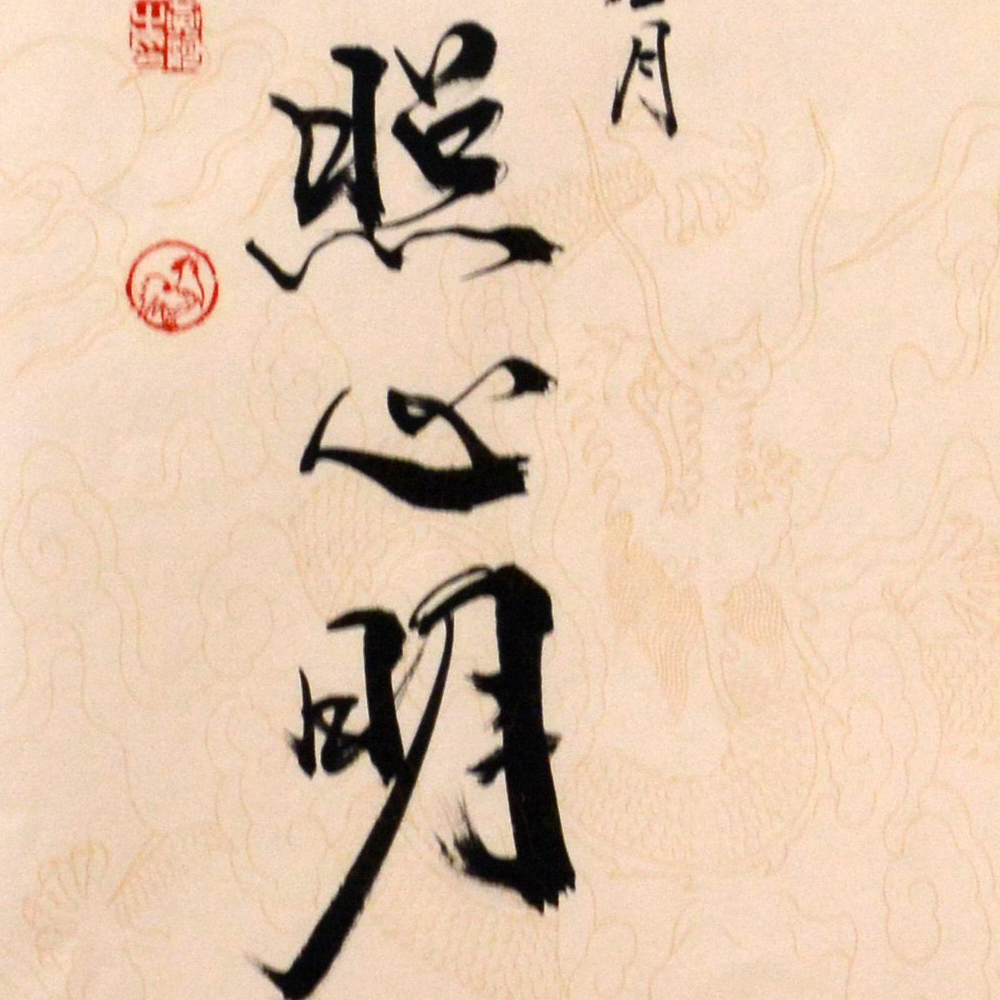 月
照心明